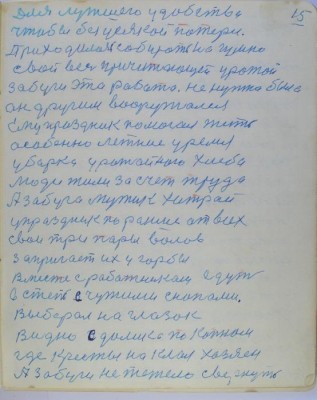 15
Для лутшего удобства
чтобы без усякой потери.
Приходилося собирать на гумно
свой весь причитающей урожай
Забуги эта работа. не нужна была
он другим вооружался
Ему праздник помогал жить
особенно летние уремя
уборка урожайного хлеба
Люди жили за счет труда
А забуга мужик хитрай
упраздник по ранше от всех
свои три пары волов
Запрягает их у гарбы
Вместе с работником едуть
В степь с чужими снопами.
Выберал на глазок
Видно с далика по копном
где кресты на клал хозяен
А Забуги не тежело свернуть